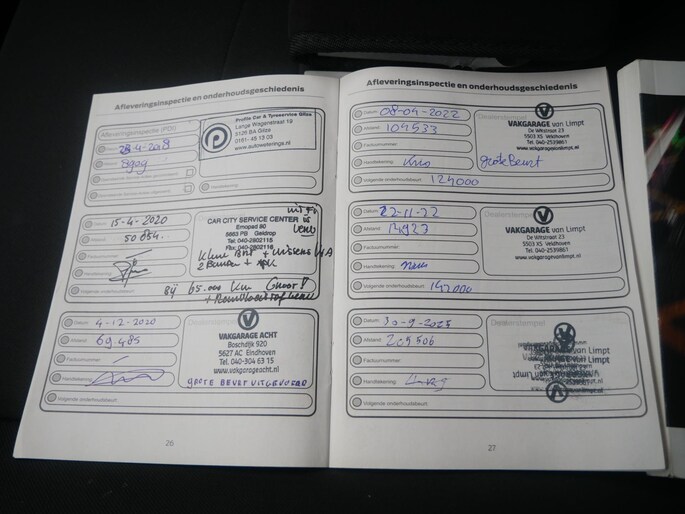 Afleveringsinspectie en onderhoudsgeschiedenis
Afleveringsinspectie (PDI)
Datum:
-4-2018
Handtekening:
Profile Car & Tyreservice Gilze
Lange Wagenstraat 19
5126 BA Gilze
0161- 45 13 03
www.autoweterings.nl
15-4-2020
50854.
Factuurnummer:
Handtekening:
Volgende onderhoudsbeurt:
CAR CITY SERVICE CENTER
Emopad 80
5663 PB Geldrop
Tel: 040-2802115
Fax: 040-2802116
2 Banden + APK
Bij 65.000 Km Groot
Datum:
4-12-2020
Afstand:
69485
Factuurnummer:
Handtekening:
Volgende onderhoudsbeurt:
Dealerstempel
VAKGARAGE ACHT
Boschdijk 920
5627 AC Eindhoven
Tel. 040-304 63 15
www.vakgarageacht.nl
GROTE BEURT UITGEVOERD
26
Afleveringsinspectie en onderhoudsgeschiedenis
Datum:
08-04-2022
Afstand:
104533
Factuurnummer:
Handtekening:
Volgende onderhoudsbeurt:
124000
Dealerstempel
VAKGARAGE van Limpt
De Witstraat 23
5503 XS Veldhoven
Tel. 040-2539861
www.vakgaragevanlimpt.nl
grote Beurt
Datum:
22-11-22
Afstand:
Factuurnummer:
Handtekening:
Volgende onderhoudsbeurt:
142000
VAKGARAGE van Limpt
De Witstraat 23
5503 XS Veldhoven
Tel. 040-2539861
www.vakgaragevanlimpt.nl
Datum:
30-9-2025
Afstand:
209506
Factuurnummer:
Handtekening:
Volgende onderhoudsbeurt:
Dealerstempel
van Limpt
27